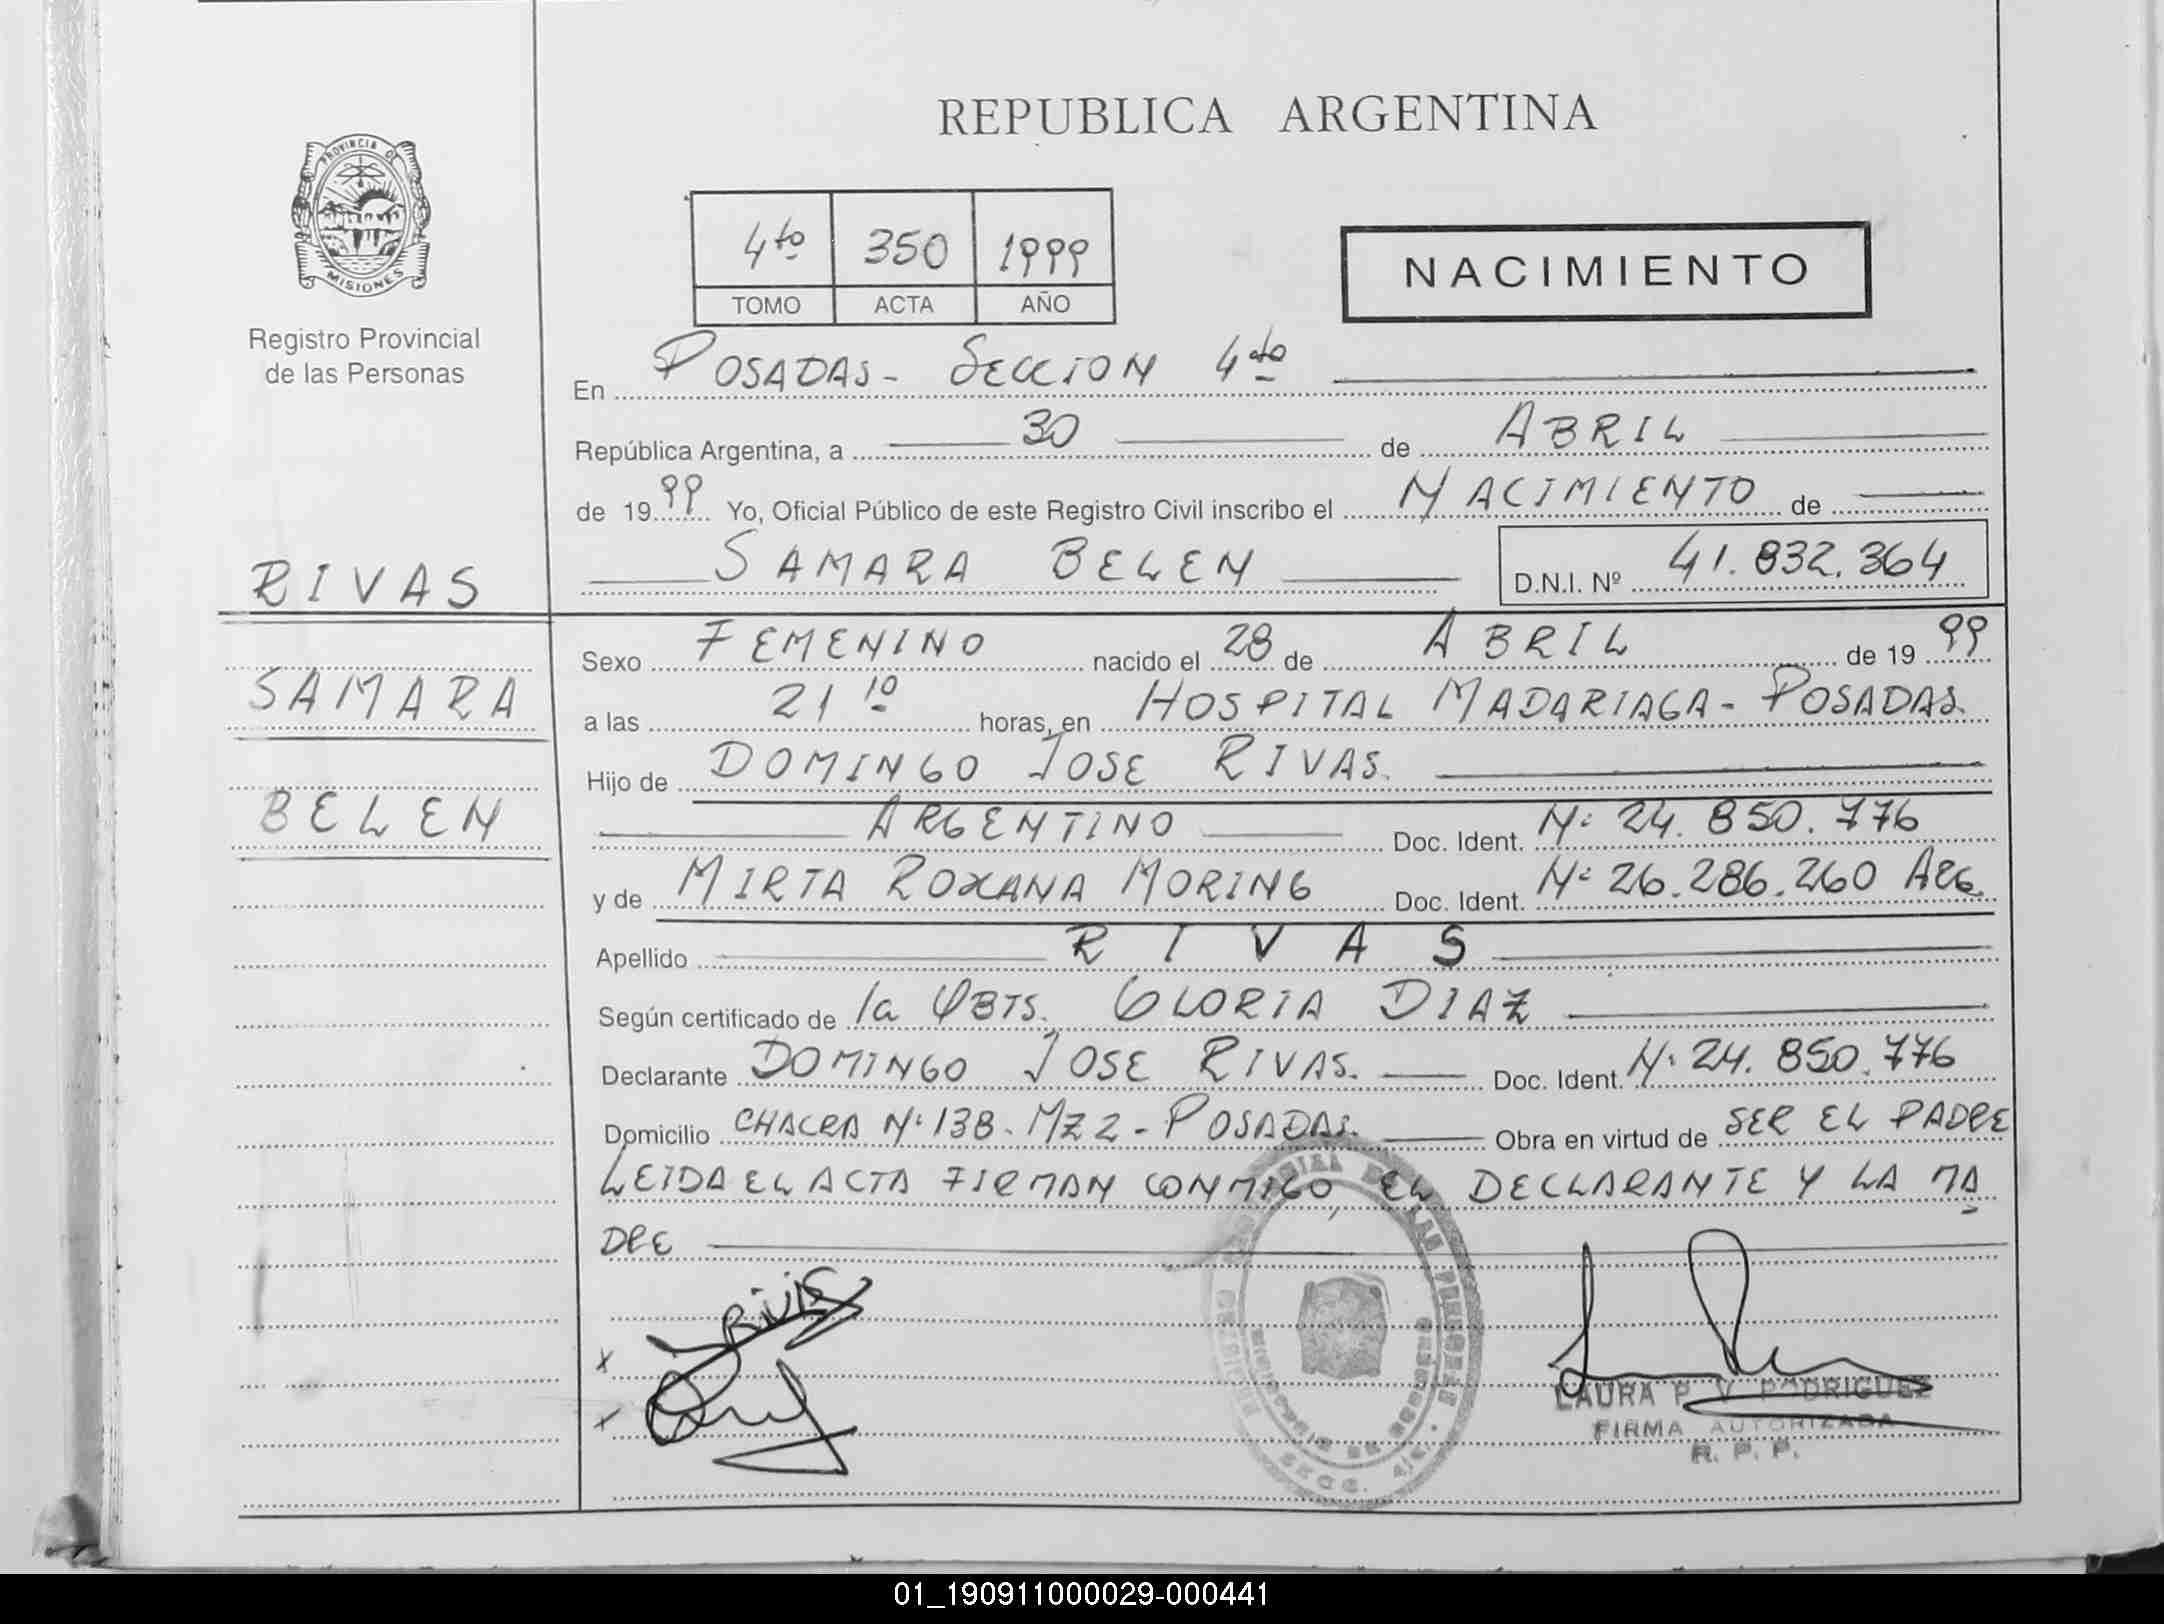 REPUBLICA ARGENTINA
PROVINCIA DE
MISIONES
Registro Provincial
de las Personas
4to 350 1999
TOMO ACTA AÑO
NACIMIENTO
En POSADAS - SECCION 4ta
República Argentina, a 30 de ABRIL
de 1999 Yo, Oficial Público de este Registro Civil inscribo el NACIMIENTO de
SAMARA BELEN D.N.I. Nº 41.832.364
RIVAS
SAMARA
BELEN
Sexo FEMENINO nacido el 28 de ABRIL de 1999
a las 21 10 horas, en HOSPITAL MADARIAGA - POSADAS
Hijo de DOMINGO JOSE RIVAS.
ARGENTINO Doc. Ident. N: 24.850.776
y de MIRTA ROXANA MORING Doc. Ident. N: 26.286.260 ARG.
Apellido RIVAS
Según certificado de la OBTS. GLORIA DIAZ
Declarante DOMINGO JOSE RIVAS. Doc. Ident. N: 24.850.776
Domicilio CHACRA N: 138 - MZ 2 - POSADAS. Obra en virtud de SER EL PADRE
LEIDA EL ACTA FIRMAN CONMIGO, EL DECLARANTE Y LA MA
DRE
x
RIVAS
x
LAURA P. V. RODRIGUEZ
FIRMA AUTORIZADA
R. P. P.
01_190911000029-000441